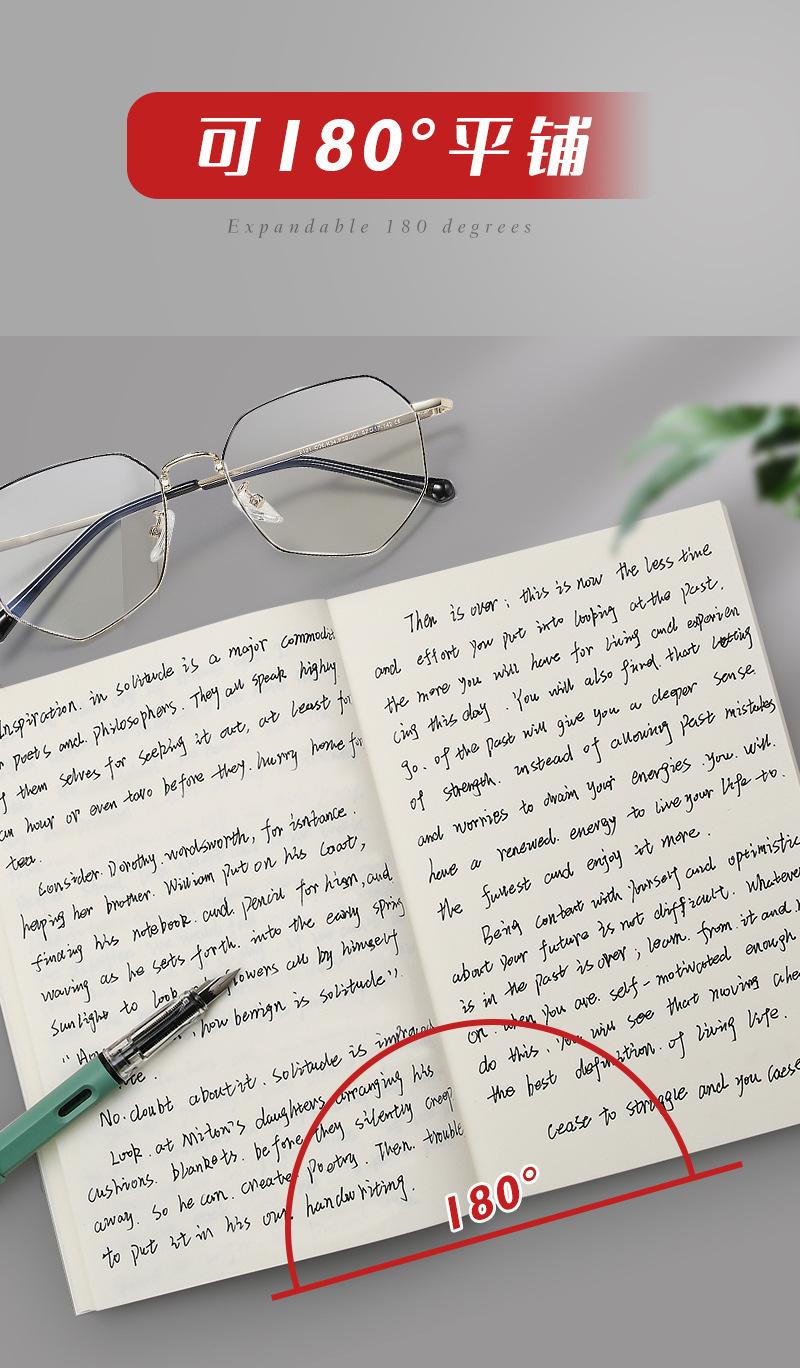 可180°平铺
Expandable 180 degrees
Inspiration. in solitude is a major commodit
poets and. philosophers. They all speak highly
them selves for seeking it out, at least for
an hour or even two before they. hurry home for
tea.
Consider. Dorothy. wordsworth, for isntance.
heping her brother. William put on his coat,
finding his notebook. and. pencil for him, and
waving as he sets forth. into the early spring
sunlight to look flowers all by himself
, how benign is solitude").
No. doubt about it. solitude is improved
Look. at Milton's daughters arranging his
cushions. blankets. before they silently creep
away. So he can. create. Poetry. Then. trouble
to put it in his own handwriting.
Then is over; this is now the less time
and effort you put into looking at the past,
the more you will have for living and experien
cing this day. You will also find. that letting
go. of the past will give you a deeper sense
of strength. instead of allowing past mistakes
and worries to drain your energies. you. will.
have a renewed. energy to live your life to.
the fullest and enjoy it more.
Being content with yourself and optimistic
about your future is not difficult. Whatever
is in the past is over; learn. from it and
on. when you are. self-motivated enough
do this, You will see that moving ahe
the best definition. of living life.
cease to struggle and you cease
180°